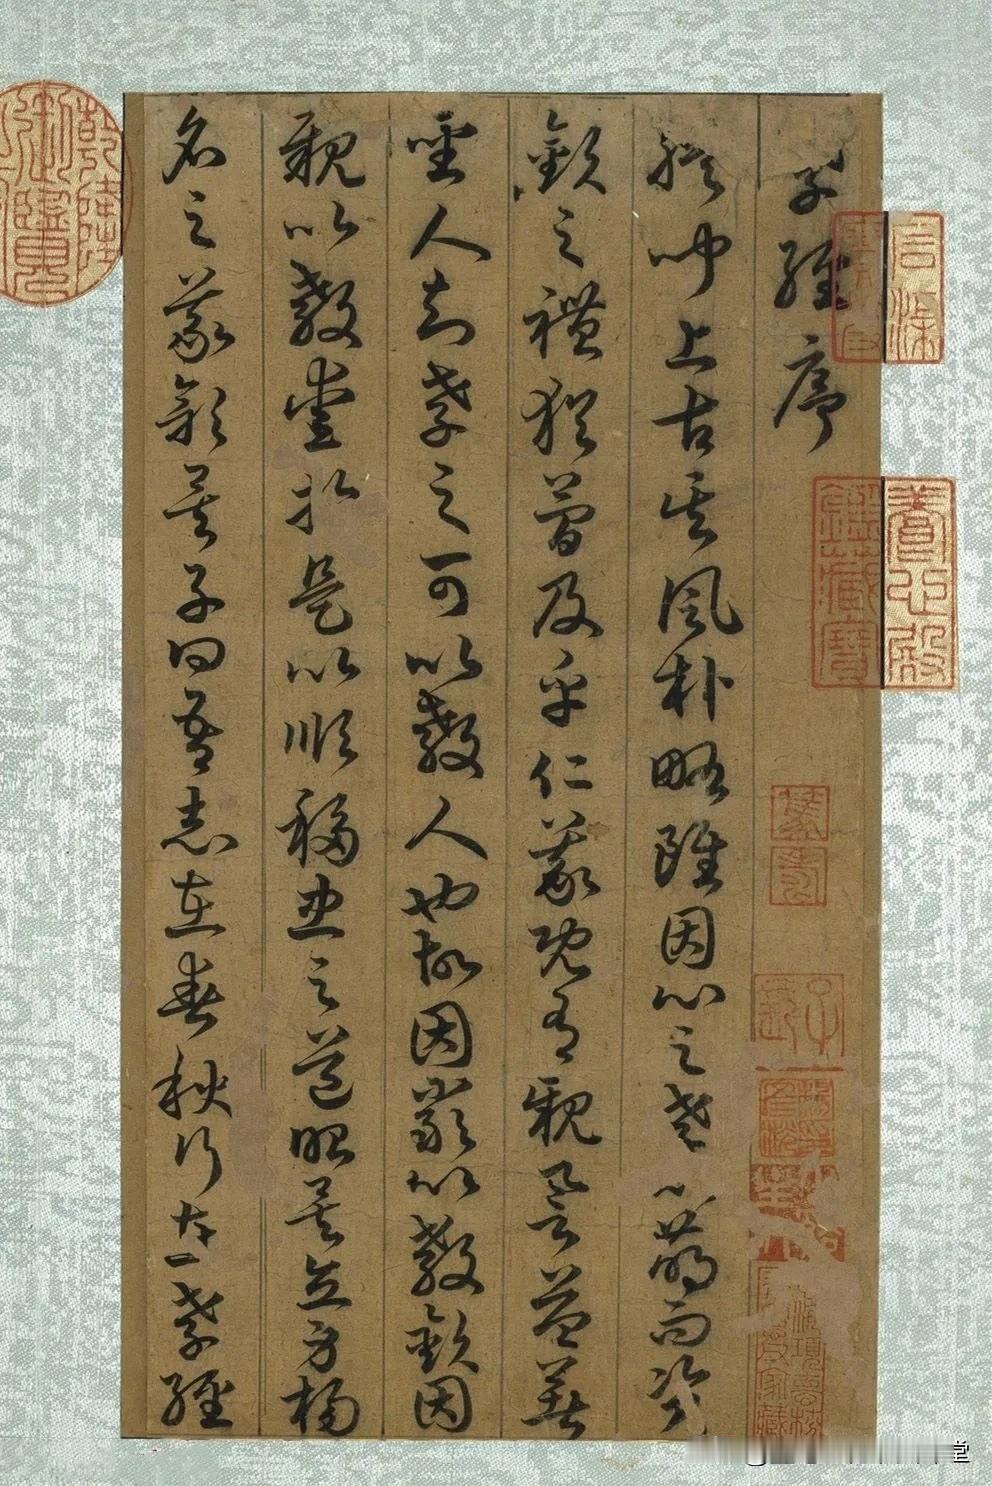 孝經序
朕聞上古其風朴略雖因心之孝以萌而資
敬之禮猶簡及乎仁義既有親譽益著
聖人知孝之可以教人也故因嚴以教敬因
親以教愛於是以順移忠之道昭矣立身揚
名之義彰矣子曰吾志在春秋行在孝經
養心殿鑑藏寶